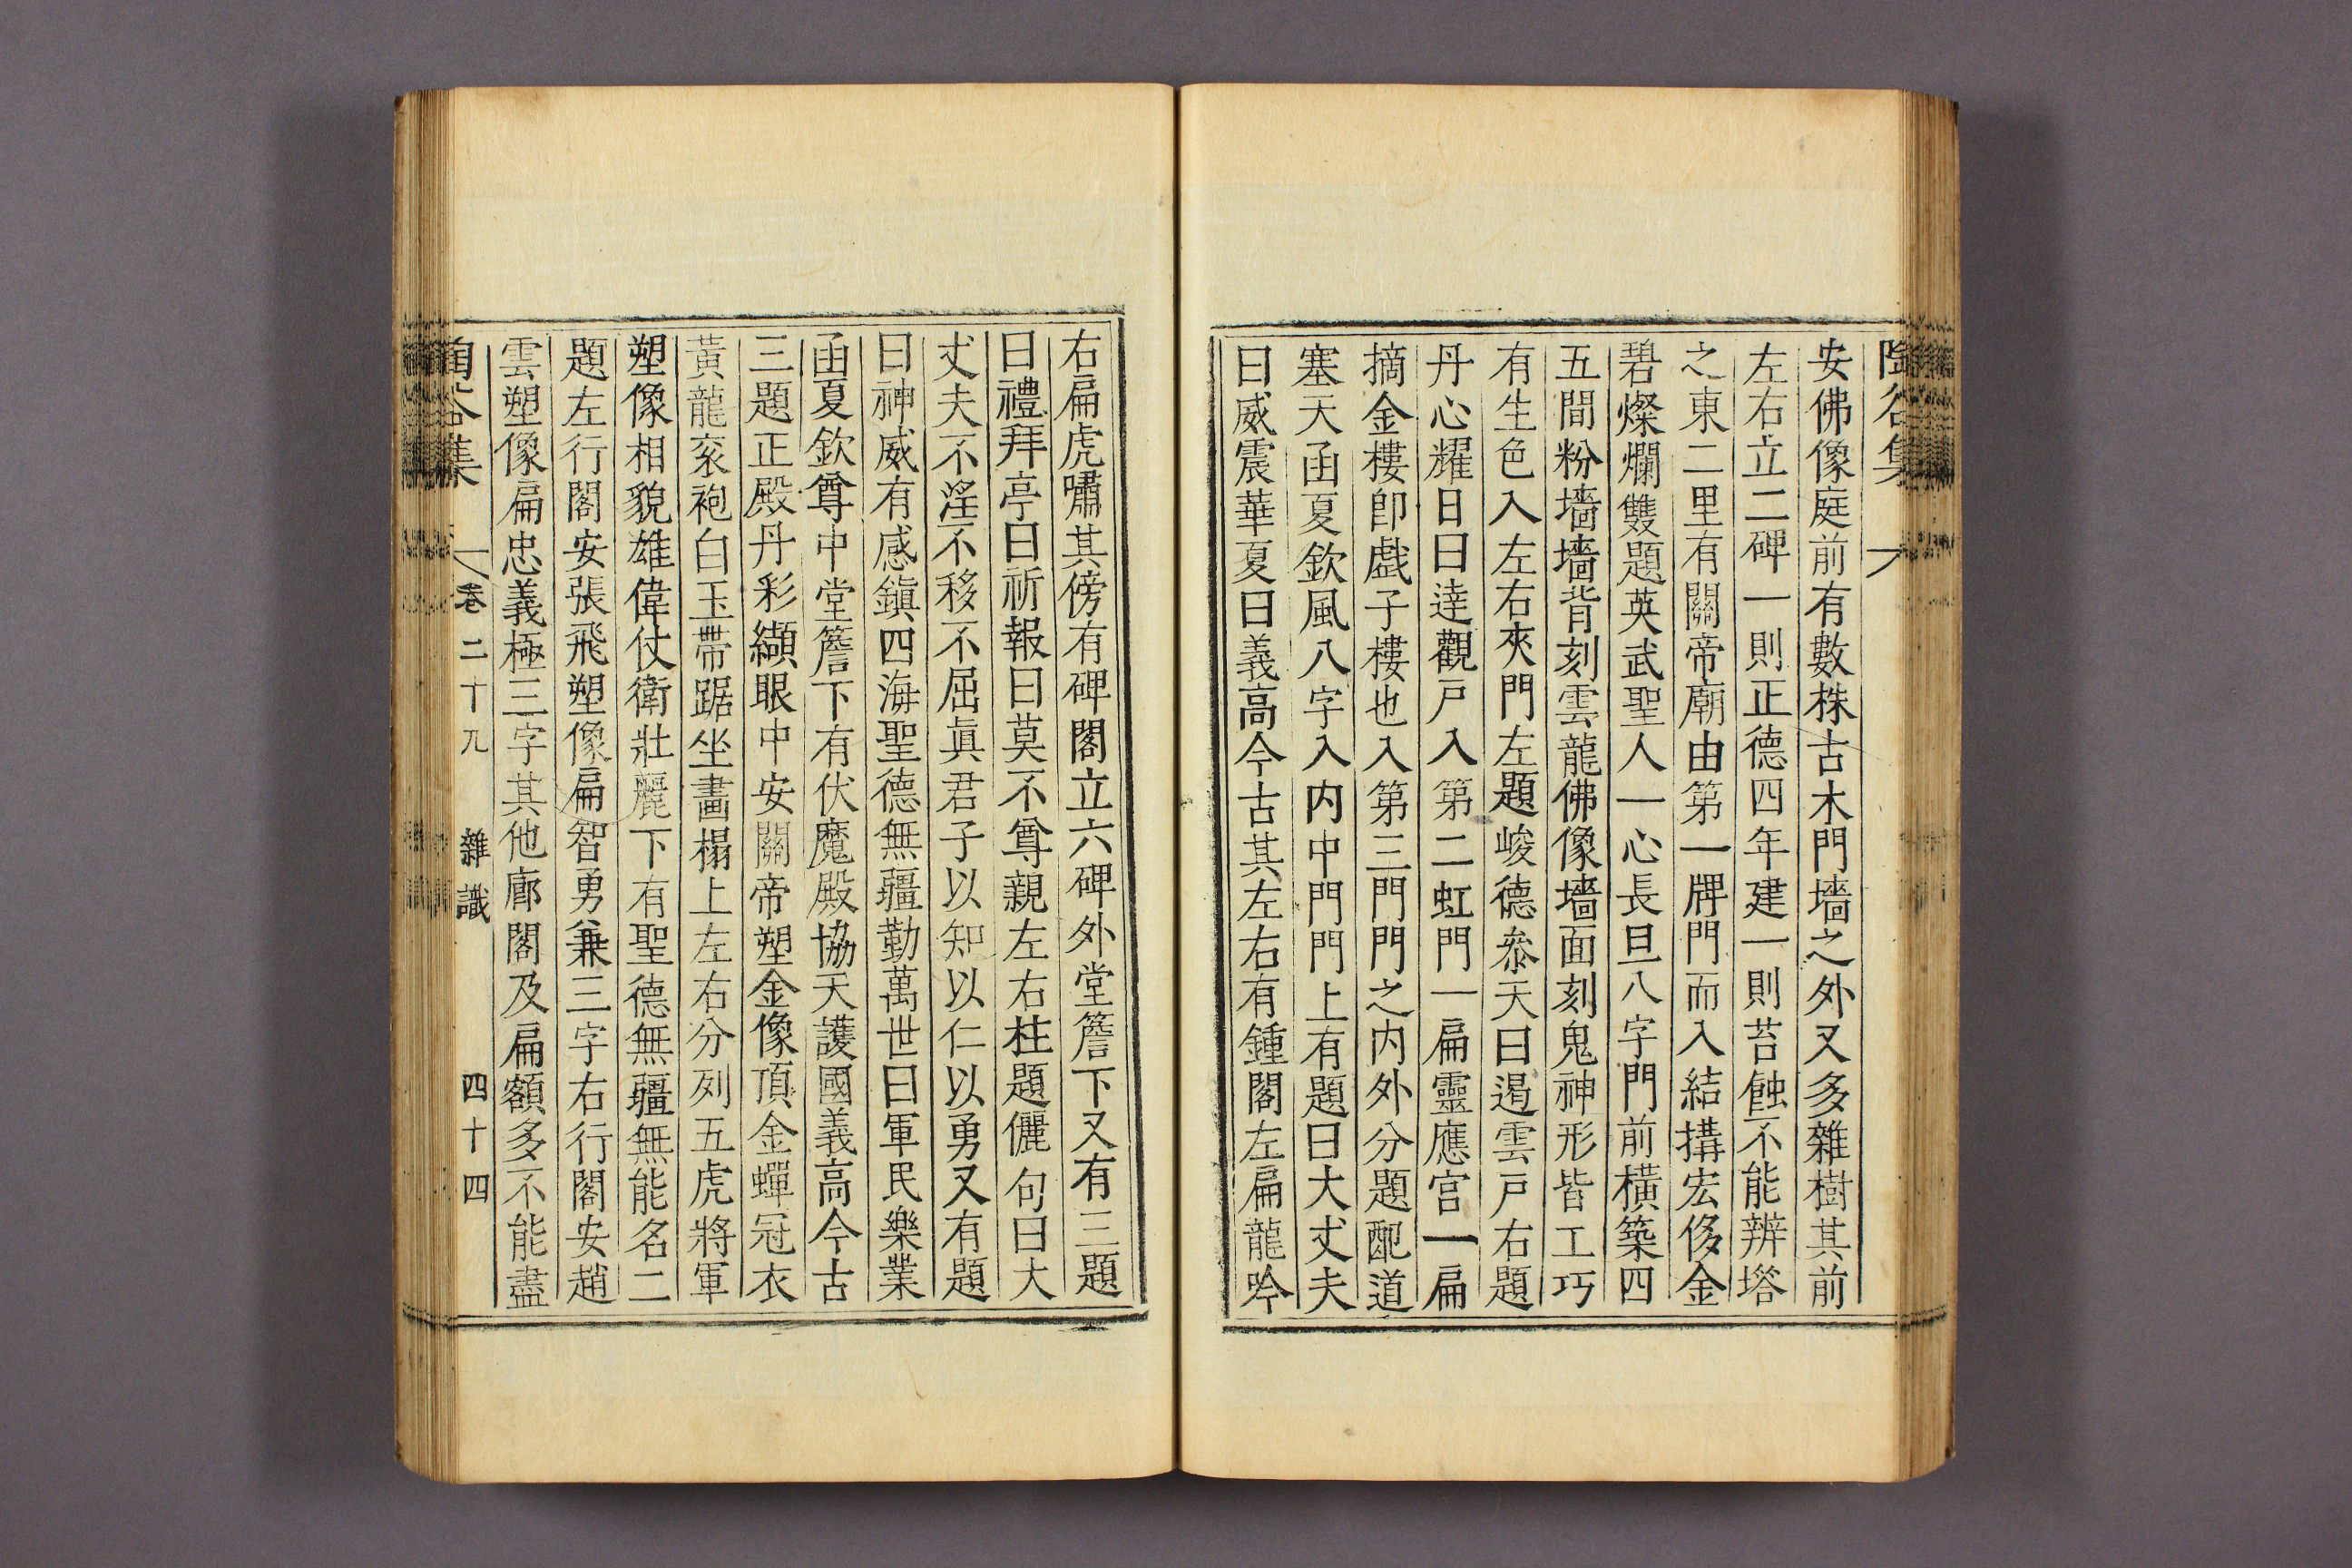 陶谷集
安佛像庭前有數株古木門墻之外又多雜樹其前
左右立二碑一則正德四年建一則苔蝕不能辨塔
之東二里有關帝廟由第一牌門而入結搆宏侈金
碧燦爛雙題英武聖人一心長旦八字門前橫築四
五間粉墻墻背刻雲龍佛像墻面刻鬼神形皆工巧
有生色入左右夾門左題峻德叅天曰遏雲戶右題
丹心耀日曰達觀戶入第二虹門一扁靈應宮一扁
摘金樓卽戱子樓也入第三門門之內外分題配道
塞天函夏欽風八字入內中門門上有題曰大丈夫
曰威震華夏曰義高今古其左右有鍾閣左扁龍吟
右扁虎嘯其傍有碑閣立六碑外堂簷下又有三題
曰禮拜亭曰祈報曰莫不尊親左右柱題儷句曰大
丈夫不淫不移不屈眞君子以知以仁以勇又有題
曰神威有感鎭四海聖德無疆勤萬世曰軍民樂業
函夏欽尊中堂簷下有伏魔殿協天護國義高今古
三題正殿丹彩纈眼中安關帝塑金像頂金蟬冠衣
黃龍衮袍白玉帶踞坐畵榻上左右分列五虎將軍
塑像相貌雄偉仗衛壯麗下有聖德無疆無能名二
題左行閣安張飛塑像扁智勇兼三字右行閣安趙
雲塑像扁忠義極三字其他廊閣及扁額多不能盡
陶谷集 卷二十九 雜識 四十四